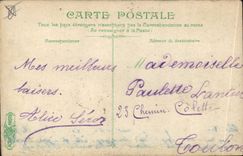 CARTE POSTALE
Tous les pays étrangers n'acceptent pas la Correspondance au recto
Se renseigner à la Poste
Correspondance
Adresse du destinataire
Mes meilleurs
baisers.
Mademoiselle
Paulette
23 Chemin
Colette
Toulon